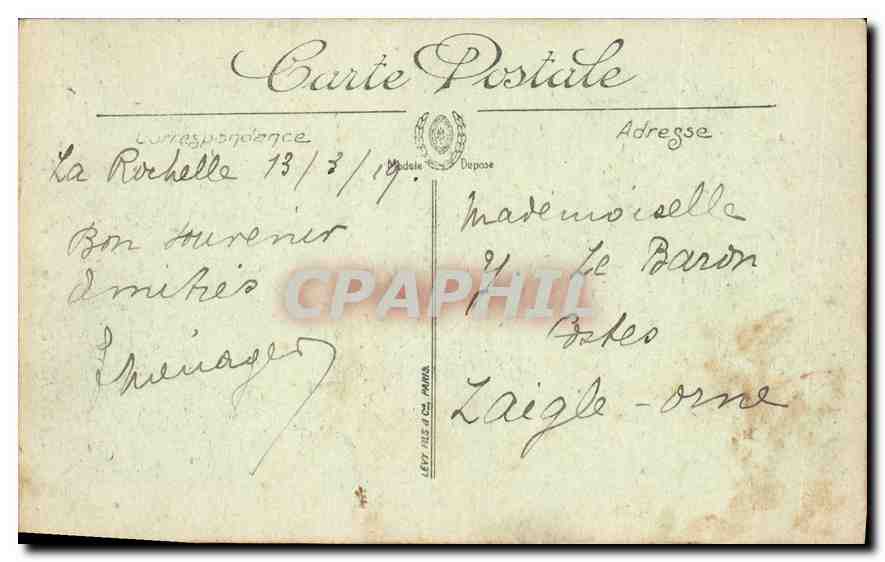 Carte Postale
Correspondance
Adresse
Modele Depose
La Rochelle 13/3/19.
Bon souvenir
Amitiés
Ménager
Mademoiselle
Y Le Baron
Postes
Laigle - Orne
LÉVY FILS & Cie, PARIS.
CPAPHIL